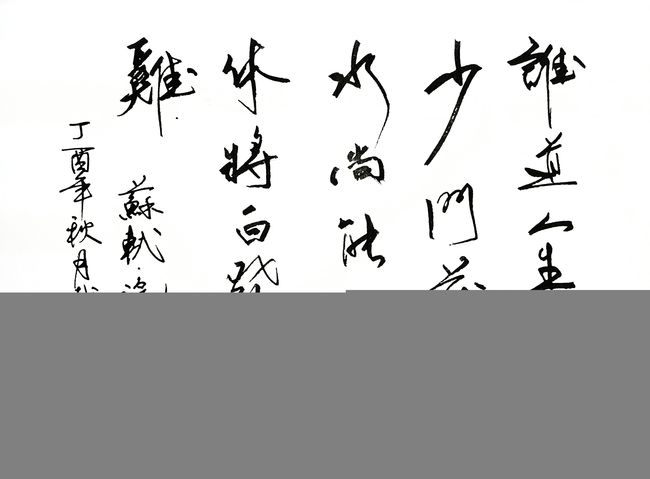 誰道人生
少門
水尚能
休將白
雞
蘇軾
丁酉年秋月